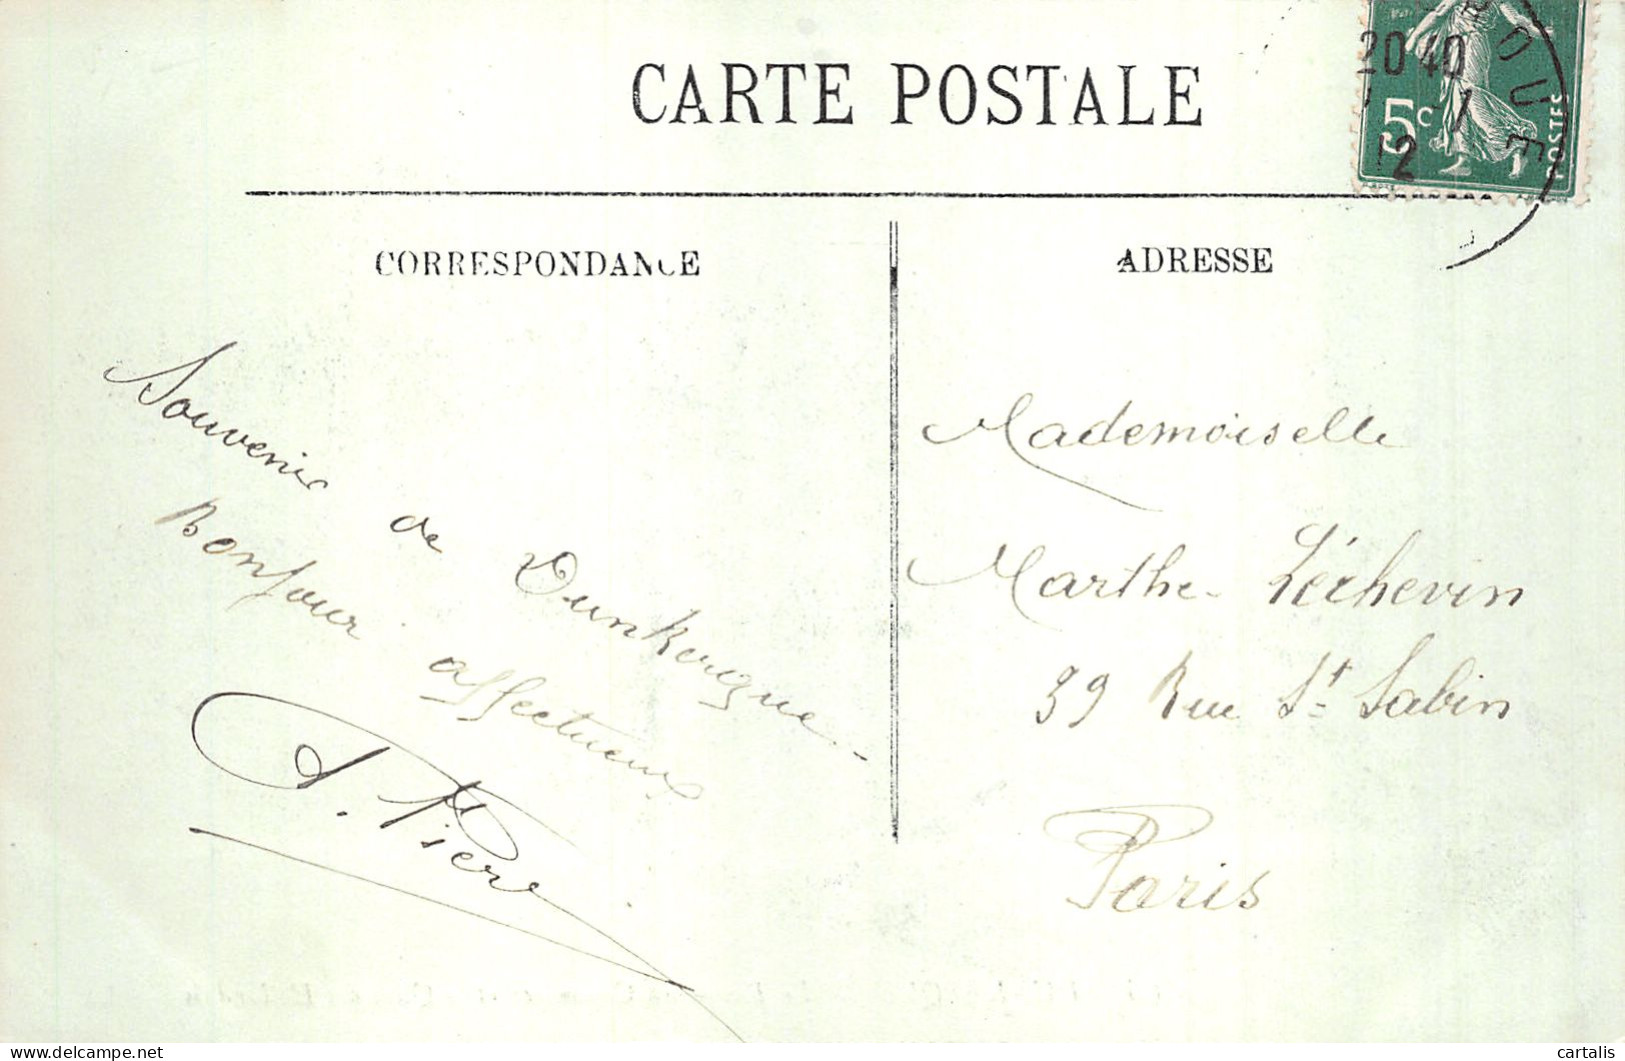 CARTE POSTALE
20 40
5c
12
POSTES
CORRESPONDANCE
ADRESSE
Souvenir de Dunkerque
Bonjour affectueux
Mademoiselle
Marthe Léchevin
39 Rue St Sabin
Paris
cartalis